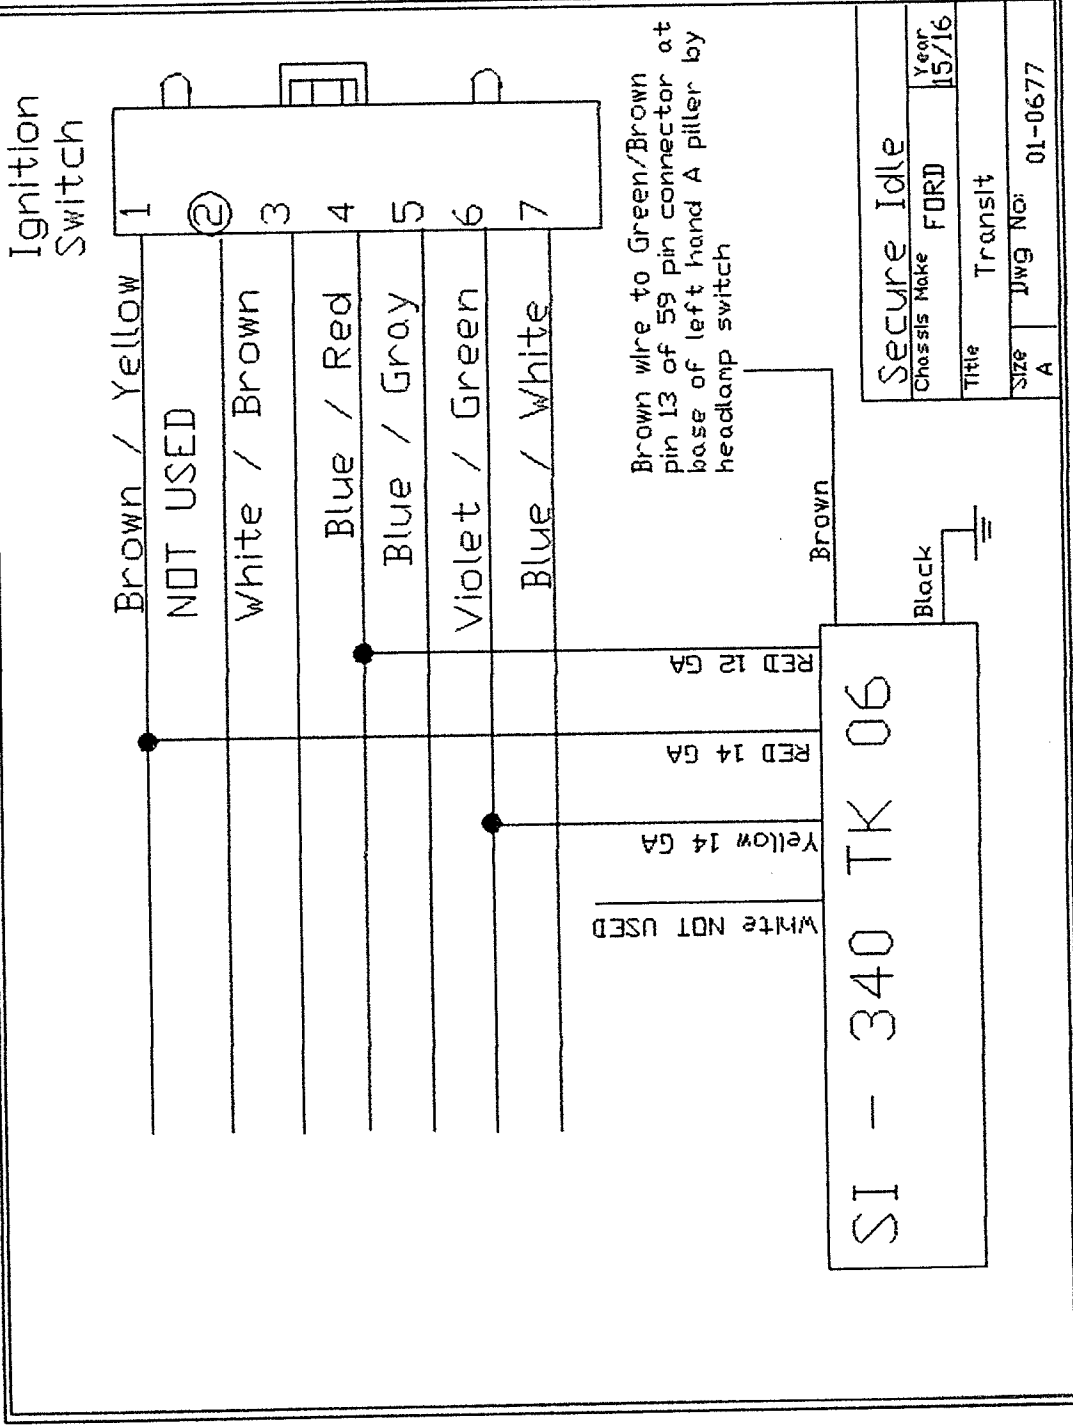 Ignition
Switch
1
2
3
4
5
6
7
Brown / Yellow
NOT USED
White / Brown
Blue / Red
Blue / Gray
Violet / Green
Blue / White
Brown wire to Green/Brown
pin 13 of 59 pin connector at
base of left hand A piller by
headlamp switch
Brown
Black
RED 12 GA
RED 14 GA
Yellow 14 GA
White NOT USED
SI - 340 TK 06
Secure Idle
Chassis Make
FORD
Year
15/16
Title
Transit
Size
A
Dwg No:
01-0677